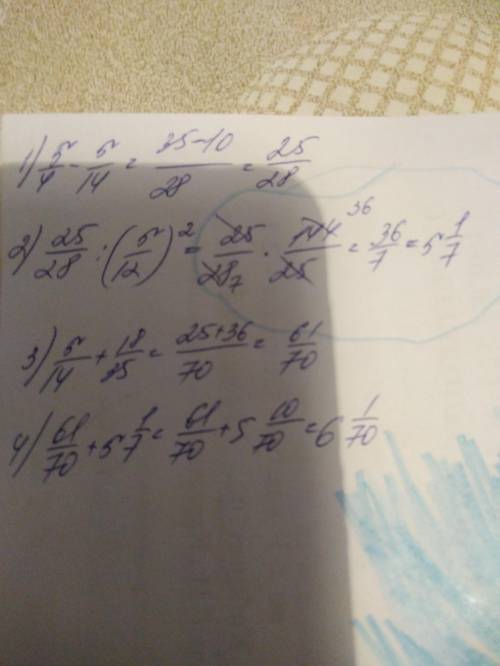 1) 5/4 - 5/14 = 35-10/28 = 25/28
2) 25/28 : (5/12)² = 25/28 7 · 144/25 36 = 36/7 = 5 1/7
3) 5/14 + 18/35 = 25+36/70 = 61/70
4) 61/70 + 5 1/7 = 61/70 + 5 10/70 = 6 1/70